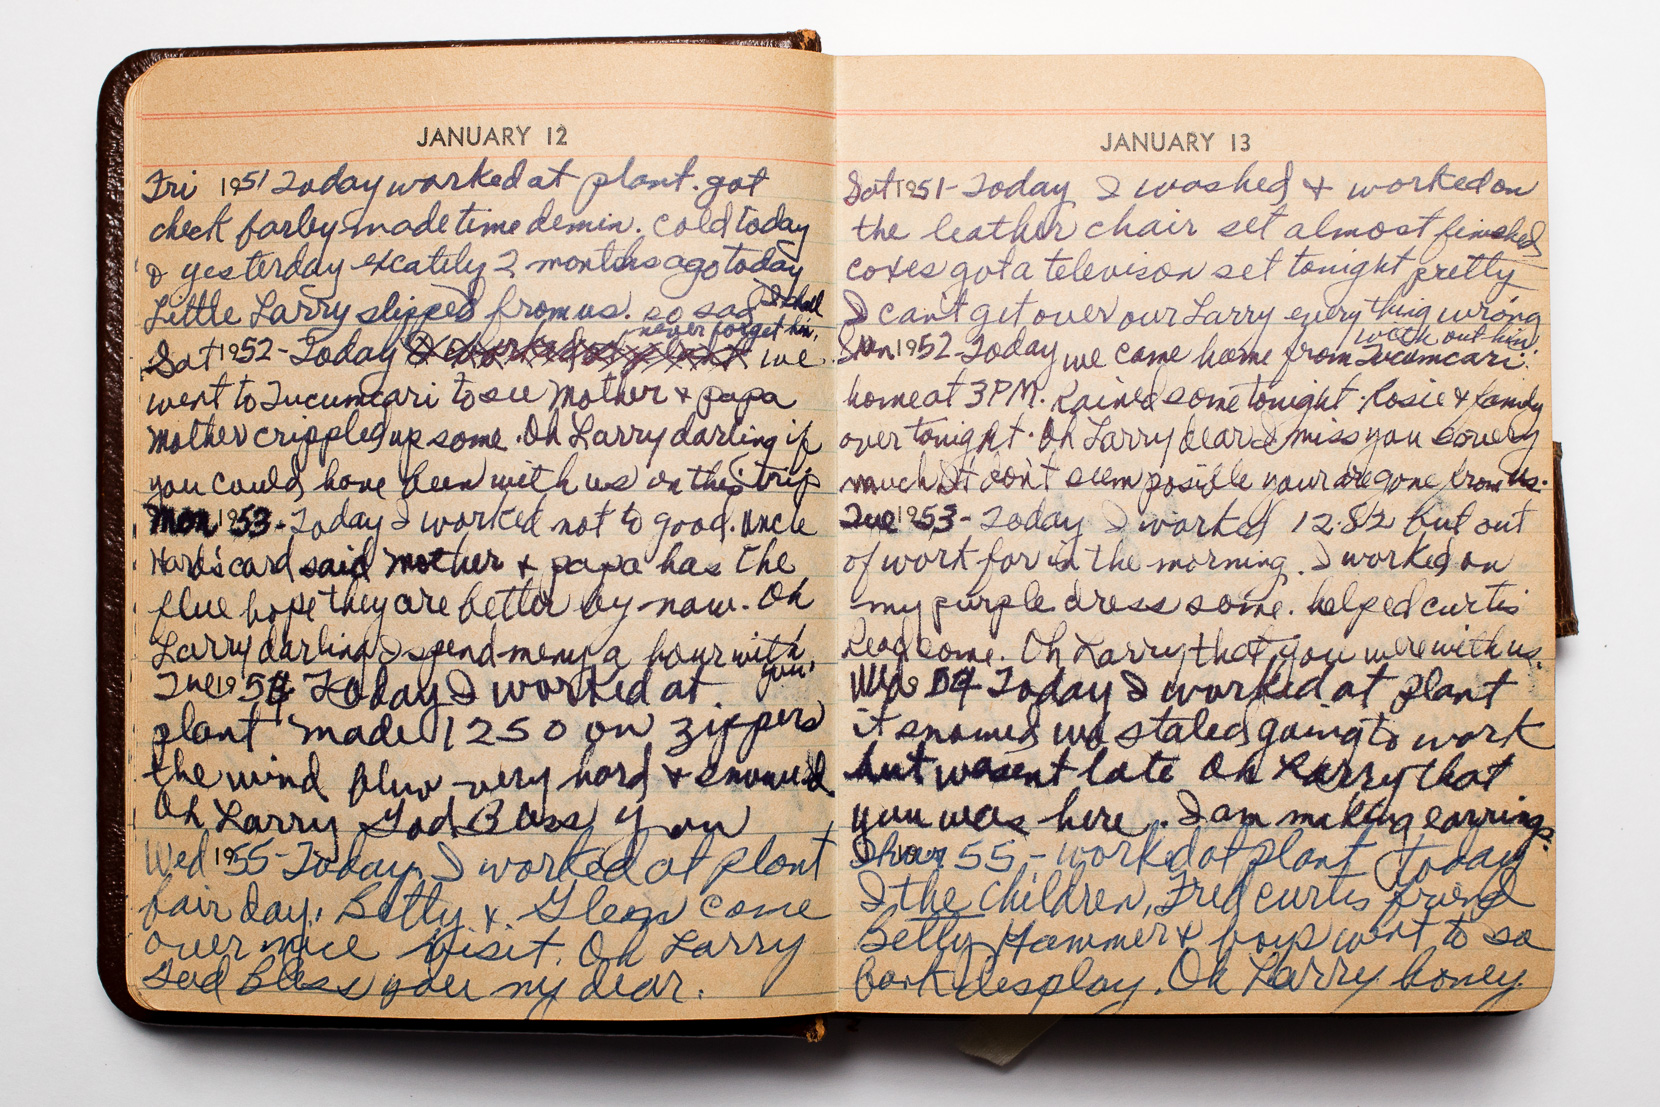 JANUARY 12
Fri 1951 Today worked at plant. got
check farley made time demin. cold today
& yesterday excatily 2 months ago today
Little Larry slipped from us. so sad I shall
never forget him.
Sat 1952 - Today I worked at plant we
went to Tucumcari to see Mother & papa
Mother crippled up some. Oh Larry darling if
you could have been with us on this trip
Mon 1953 - Today I worked not to good. Uncle
card said Mother & papa has the
flue hope they are better by now. Oh
Larry darling I spend meny a hour with
you.
Tue 1954 Today I worked at
plant made 1250 on zippers
the wind blew very hard & snowed
Oh Larry God Bless you
Wed 1955 - Today I worked at plant
fair day. Betty & Glenn come
over nice visit. Oh Larry
God Bless you my dear.
JANUARY 13
Sat 1951 - Today I washed & worked on
the leather chair set almost finished
coxes got a televison set tonight pretty
I can't get over our Larry every thing wrong
with out him
Sun 1952 - Today we come home from Tucumcari.
home at 3 PM. Rained some tonight. Rosie & family
over tonight. Oh Larry dear I miss you so very
much It don't seem posible your are gone from us.
Tue 1953 - Today I worked 12.82 but out
of work for in the morning. I worked on
my purple dress some. helped curtis
Read some. Oh Larry that you were with us.
Wed 54 Today I worked at plant
it snowed we staled going to work
but wasent late Oh Larry that
you was here. I am making earrings.
Thur 55 - worked at plant today
I the children, Fred curtis friend
Betty Hammer & boys went to so
park desplay. Oh Larry honey.